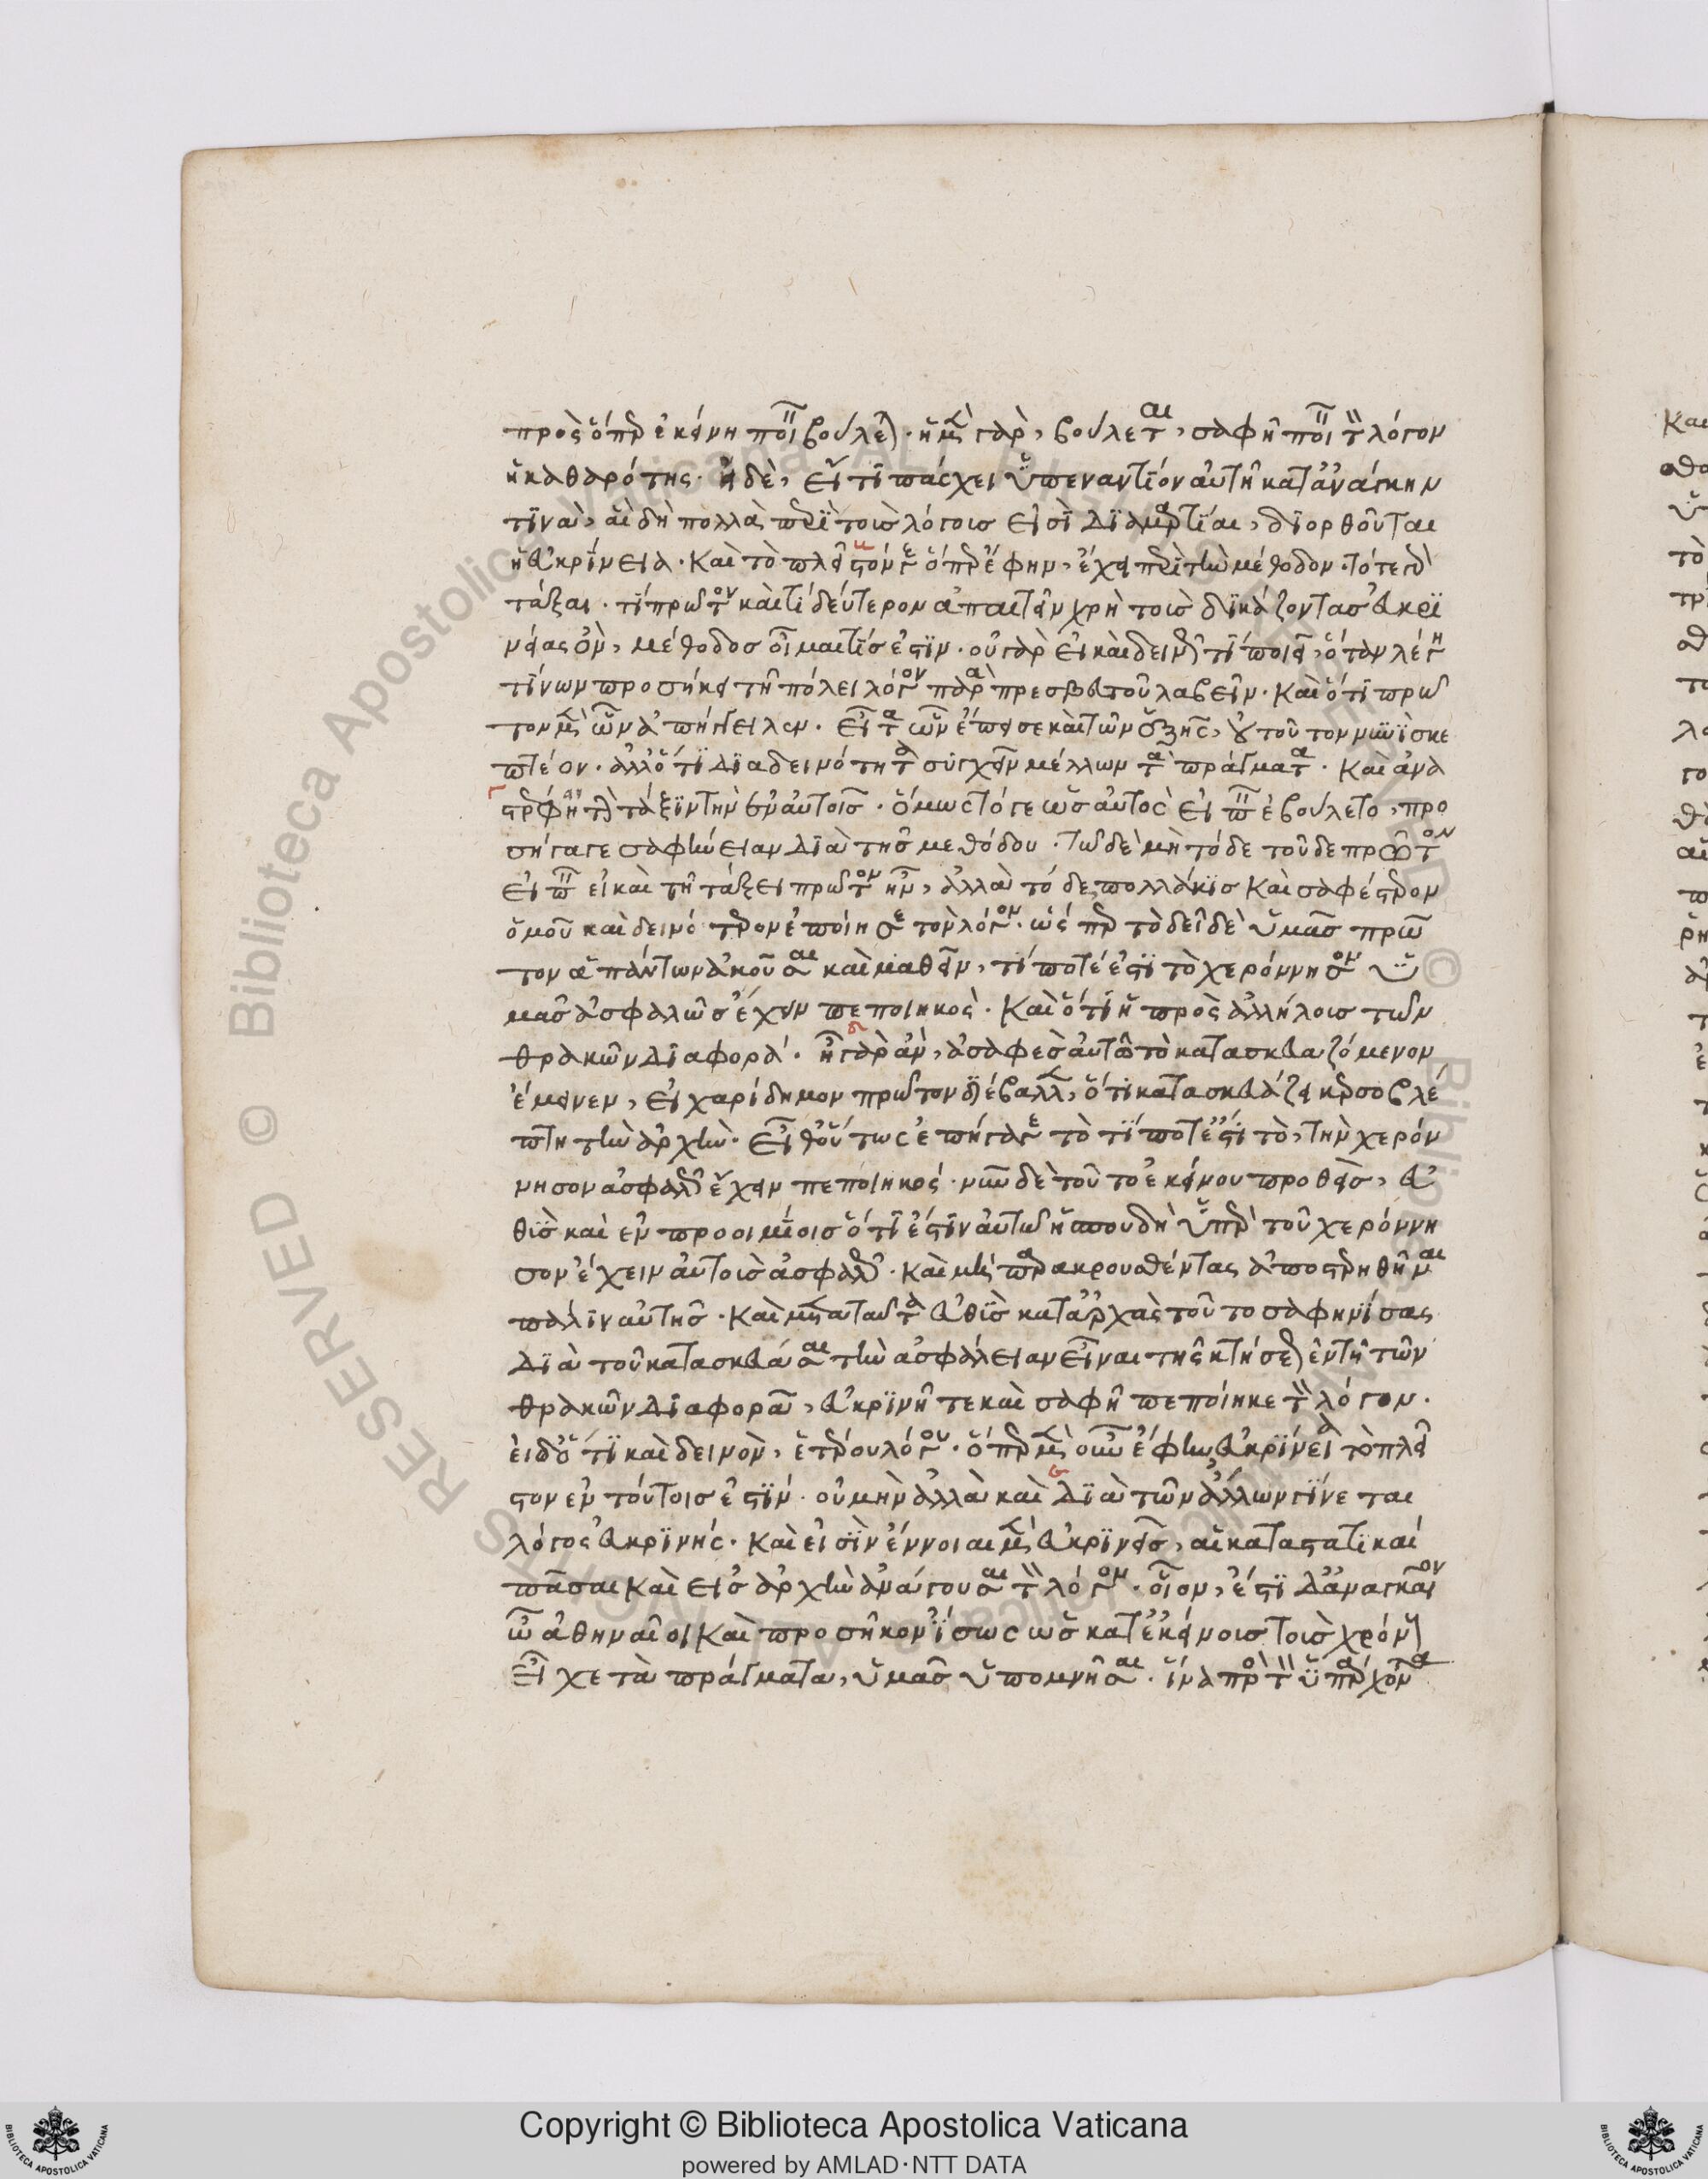 πρὸς ὅπερ ἐκείνη ποιεῖν βούλεται· ἡ μὲν γὰρ, βούλεται, σαφῆ ποιεῖν τὸν λόγον
ἡ καθαρότης· ἡ δὲ, εἴ τι πάσχει ὑπεναντίον αὐτῇ κατ' ἀνάγκην
τινὰ, ἃ δὴ πολλὰ περὶ τοῖς λόγοις εἰσὶ διαμαρτίαι, διορθοῦται
ἡ εὐκρίνεια. καὶ τὸ πλεῖστόν γε ὅπερ ἔφην, ἔχει περὶ τὴν μέθοδον. τό τε γὰρ
τάξαι. τί πρῶτον καὶ τί δεύτερον ἀπαιτεῖν χρὴ τοὺς δικάζοντας εὐκρι
νείας ὂν, μέθοδος οἶμαι τίς ἐστιν. οὐ γὰρ εἰ καὶ δεινῶς τι ποιεῖ, ὅταν λέγῃ
τίνων προσήκει τῇ πόλει λόγον παρὰ πρεσβευτοῦ λαβεῖν. καὶ ὅτι πρῶ
τον μὲν ὧν ἀπήγγειλεν. εἶτα ὧν ἔπεισε καὶ τῶν ἑξῆς, οὐ τοῦτον νυνὶ σκε
πτέον. ἀλλ' ὅτι διὰ δεινότητα συγχεῖν μέλλων τὰ πράγματα. καὶ ἀνα
στρέφειν τὴν τάξιν τὴν ἐν αὐτοῖς. ὅμως τό γε ὡς αὐτὸς εἰπεῖν ἐβούλετο, προ
σήγαγε σαφήνειαν διὰ τῆς μεθόδου. τῷ δὲ μὴ τόδε τοῦδε πρῶτον
εἰπεῖν εἰ καὶ τῇ τάξει πρῶτον ἦν, ἀλλὰ τόδε πολλάκις καὶ σαφέστερον
ὁμοῦ καὶ δεινότερον ἐποίησε τὸν λόγον. ὥσπερ τὸ δεῖ δὲ ὑμᾶς πρῶ
τον ἁπάντων ἀκοῦσαι καὶ μαθεῖν, τί ποτέ ἐστι τὸ χερόννησον ὑ
μᾶς ἀσφαλῶς ἔχειν πεποιηκὸς. καὶ ὅτι ἡ πρὸς ἀλλήλοις τῶν
θρακῶν διαφορά. ἦ γὰρ ἂν, ἀσαφὲς αὐτῶ τὸ κατασκευαζόμενον
ἔμεινεν, εἰ χαρίδημον πρῶτον διέβαλλεν, ὅτι κατασκευάζει κερσοβλέ
πτῃ τὴν ἀρχὴν. εἶθ' οὕτως ἐπήγαγε τὸ τί ποτέ ἐστι τὸ, τὴν χερόν
νησον ἀσφαλῶς ἔχειν πεποιηκός. νῦν δὲ τοῦτο ἐκείνου προθεὶς, εὐ
θὺς καὶ ἐν προοιμίοις ὅτι ἐστὶν αὐτῷ ἡ σπουδὴ ὑπὲρ τοῦ χερόννη
σον ἔχειν αὐτοὺς ἀσφαλῶς. καὶ μὴ παρακρουσθέντας ἀποστερηθῆναι
πάλιν αὐτῆς. καὶ μετὰ ταῦτα εὐθὺς κατ' ἀρχὰς τοῦτο σαφηνίσας
διὰ τοῦ κατασκευάσαι τὴν ἀσφάλειαν εἶναι τῆς κτήσεως ἐν τῇ τῶν
θρακῶν διαφορᾷ, εὐκρινῆ τε καὶ σαφῆ πεποίηκε τὸν λόγον.
εἰ δ' ὅτι καὶ δεινὸν, ἑτέρου λόγου. ὅπερ μὲν οὖν ἔφην, εὐκρίνεια τὸ πλεῖ
στον ἐν τούτοις ἐστίν. οὐ μὴν ἀλλὰ καὶ διὰ τῶν ἄλλων γίνεται
λόγος εὐκρινής. καὶ εἰσὶν ἔννοιαι μὲν εὐκρινεῖς, αἱ καταστατικαί
πᾶσαι καὶ εἰς ἀρχὴν ἀνάγουσαι τὸν λόγον. οἷον, ἔστι δ' ἀναγκαῖον
ὦ ἀθηναῖοι καὶ προσῆκον ἴσως ὡς κατ' ἐκείνοις τοῖς χρόνοις
εἶχε τὰ πράγματα, ὑμᾶς ὑπομνῆσαι. ἵνα πρὸς τὸν ὑπάρχοντα